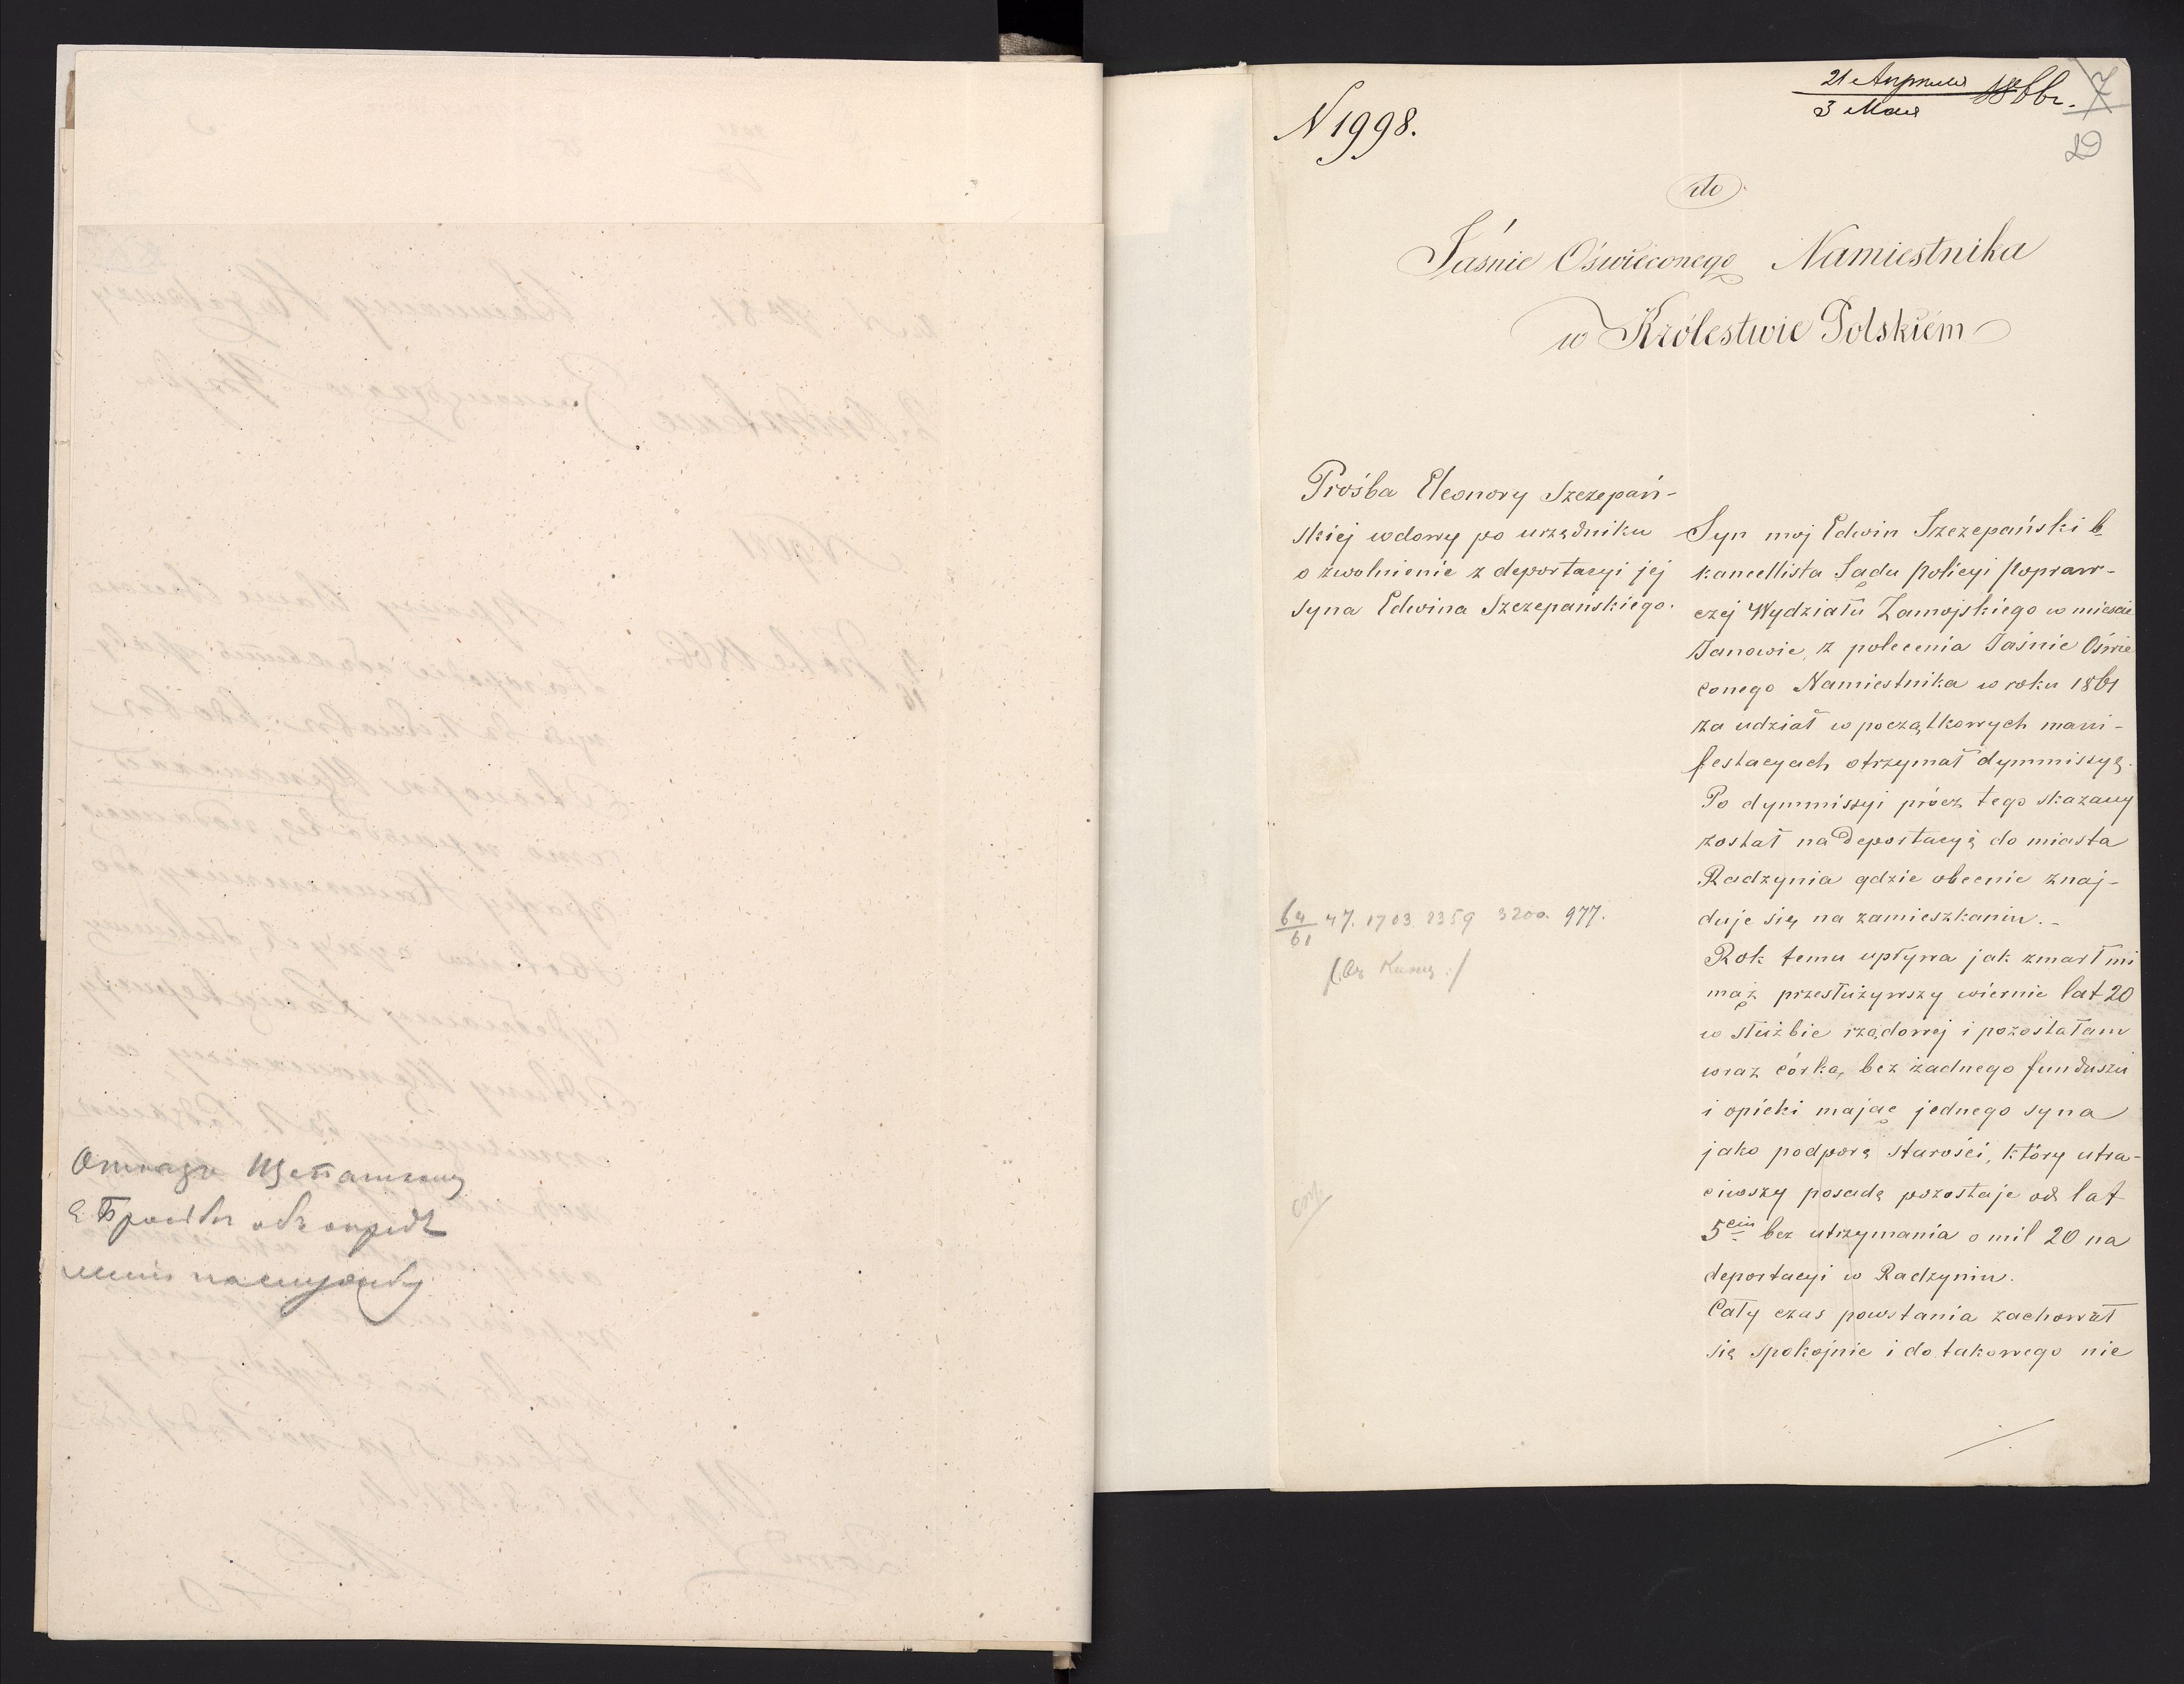 Отказъ Щепанском
о просьбе объ опредѣ
лении на службу
21 Апреля / 3 Мая 1866 г.
7
19
N 1998.
do
Jaśnie Oświeconego Namiestnika
w Królestwie Polskiém
Prośba Eleonory Szczepań-
skiej wdowy po urzędniku
o zwolnienie z deportacyi jej
syna Edwina Szczepańskiego.
64/61 47. 1703 2359 3200. 977.
Syn moj Edwin Szczepański b
kancellista Sądu Policyi Popraw-
czej Wydziału Zamojskiego w miescie
Janowie, z polecenia Jaśnie Oświe
conego Namiestnika w roku 1861
za udział w początkowych mani-
festacyach otrzymał dymmissyę.
Po dymmissyi prócz tego skazany
został na Deportacyę do miasta
Radzynia gdzie obecnie znaj-
duje się na zamieszkaniu.-
Rok temu upływa jak zmarł mi
mąż przesłużywszy wiernie lat 20
w służbie rządowej i pozostałam
wraz córką, bez żadnego funduszu
i opieki mając jednego syna
jako podporę starości, który utra-
ciwszy posadę pozostaje od lat
5ciu bez utrzymania o mil 20 na
deportacyi w Radzyniu.
Cały czas powstania zachował
się spokojnie i do takowego nie